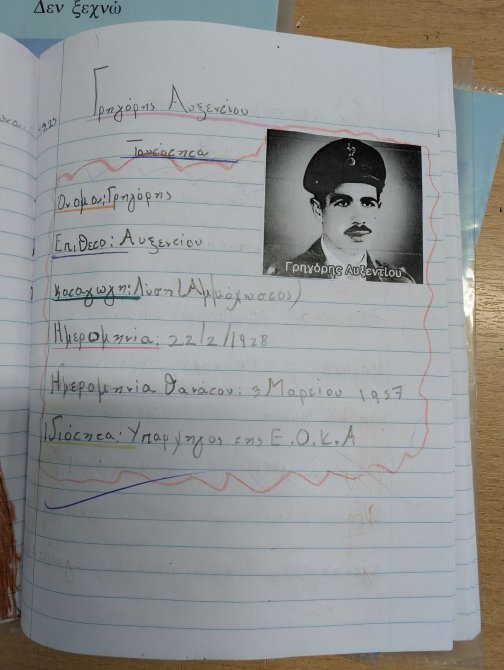 Δεν ξεχνώ
Γρηγόρης Αυξεντίου
Ταυτότητα
Όνομα: Γρηγόρης
Επίθετο: Αυξεντίου
Καταγωγή: Λύση (Αμμόχωστος)
Γρηγόρης Αυξεντίου
Ημερομηνία: 22/2/1928
Ημερομηνία θανάτου: 3 Μαρτίου 1957
Ιδιότητα: Υπαρχηγος της Ε.Ο.Κ.Α